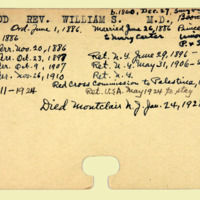 b. 1860, Dec. 27,
OD REV. WILLIAM S. M.D.
Ord. June 1, 1886. Married June 26, 1886
1886 Emery Carter
rr. Nov. 20, 1886 Ret. N.Y. June 29, 1896
rr. Oct. 23, 1897 Ret. N.Y. May 31, 1906
rr. Oct. 9, 1907 Ret. N.Y.
rr. Nov. 26, 1910 Red Cross Commission to Palestine,
11-1924 Ret. U.S.A. May 1924 to stay
Died Montclair N.J. Jan. 24, 192